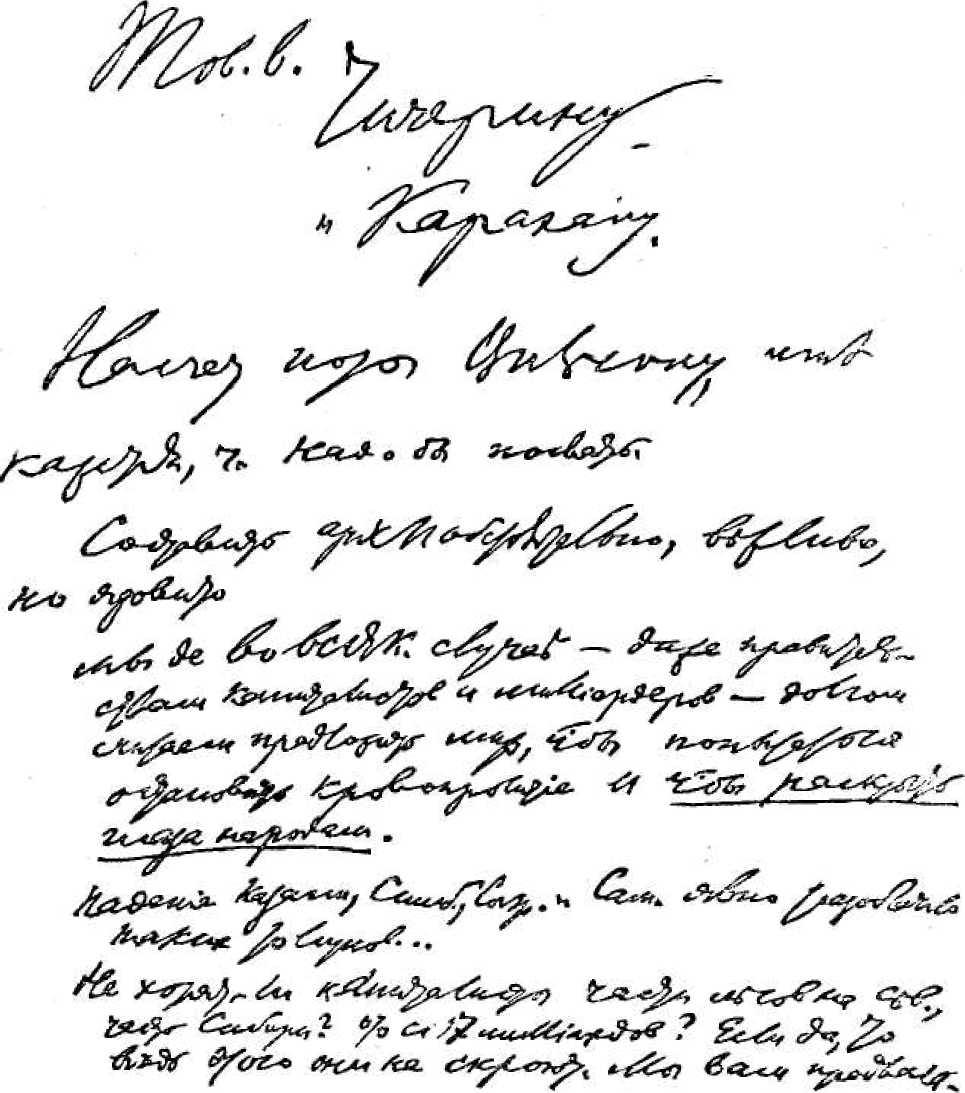 Тов. в. Чичерину
и Карахану.
Насчет ноты Вильсону, мнѣ
кажется, ч. надо бы послать.
Составить архиобстоятельно, вѣжливо,
но ядовито
мы де во всяк. случаѣ — даже правитель-
ствам капиталистов и миллиардеров — долгом
считаем предложить мир, чтобы попытаться
остановить кровопролитiе и чтобы раскрыть
глаза народам.
Паденiе Казани, Симб., Сызр. и Сам. явно
таких
Не хотят-ли капиталисты часть лѣсов на сѣв.,
часть Сибири? % с 17 миллiардов? Если да, то
вѣдь этого они не скроют. Мы вам предлага-